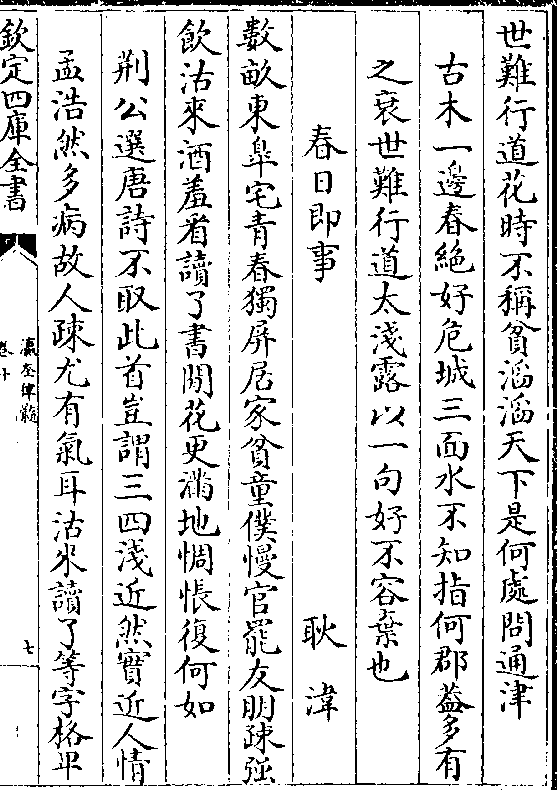 世難行道花時不稱貧滔滔天下是何處問通津
古木一邊春絶好危城三面水不知指何郡葢多有
之衰世難行道太淺露以一句好不容棄也
春日即事　耿湋
數畝東臯宅青春獨屏居家貧童僕慢官罷友朋疎强
飲沽來酒羞看讀了書閒花更滿地惆悵復何如
荆公選唐詩不取此首豈謂三四淺近然實近人情
孟浩然多病故人疎尤有氣耳沽來讀了等字格卑
欽定四庫全書
瀛奎律髓
卷十
七